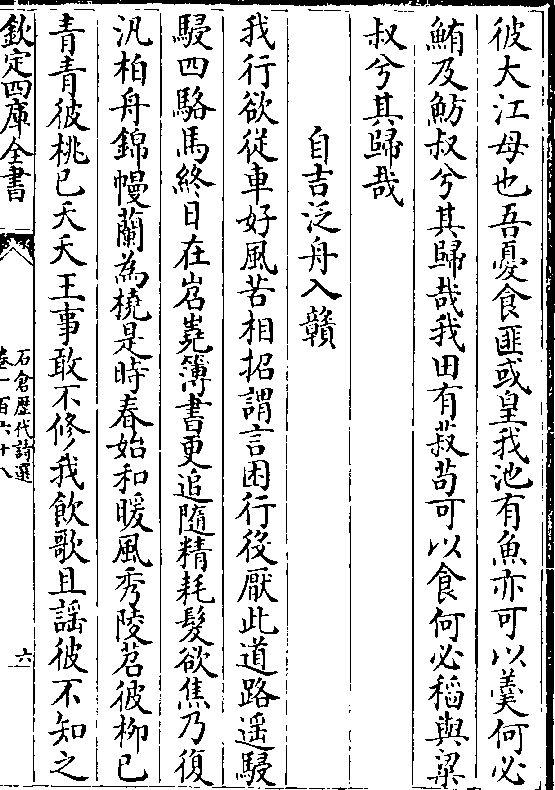 彼大江母也吾憂食匪或皇我池有魚亦可以羮何必
鮪及魴叔兮其歸哉我田有菽苟可以食何必稻與粱
叔兮其歸哉
自吉泛舟入贛
我行欲從車好風苦相招謂言困行役厭此道路遥駸
駸四駱馬終日在岧嶤簿書更追隨精耗髪欲焦乃復
汎柏舟錦幔蘭為橈是時春始和暖風秀陵苕彼柳已
青青彼桃已夭夭王事敢不修我飲歌且謡彼不知之
欽定四庫全書
石倉歴代詩選
卷一百六十八
六